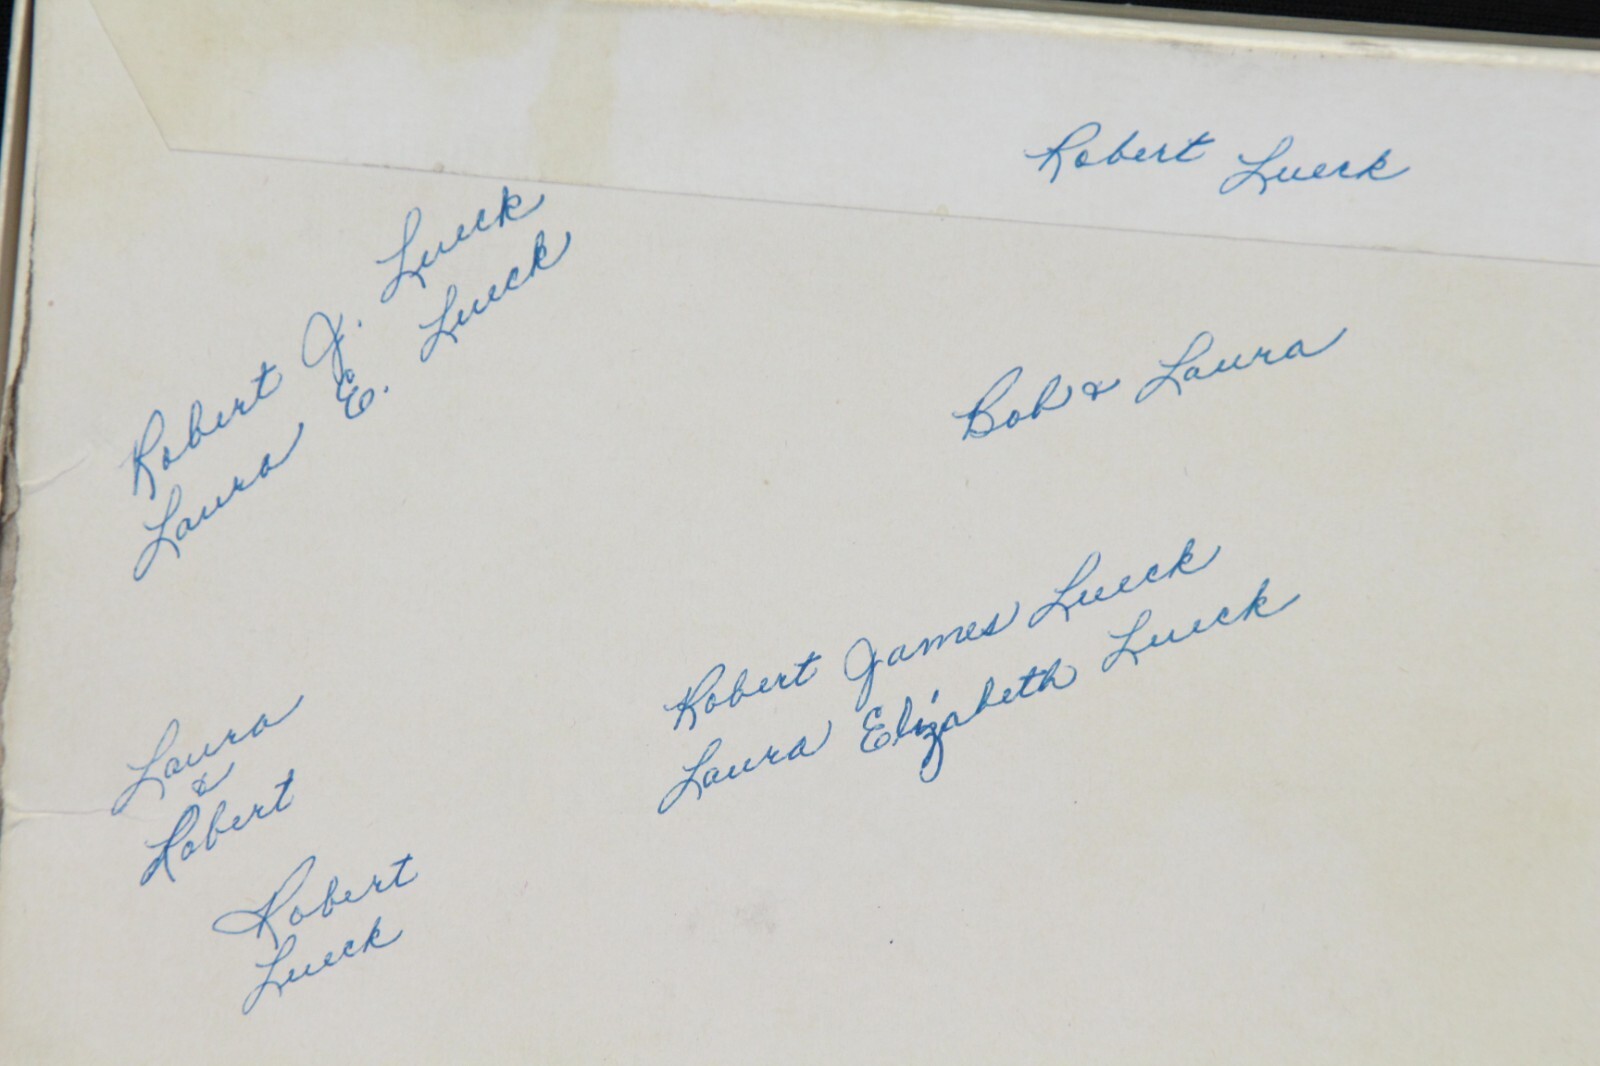 Robert Lueck
Robert J. Lueck
Laura E. Lueck
Bob & Laura
Robert James Lueck
Laura Elizabeth Lueck
Laura
&
Robert
Robert
Lueck